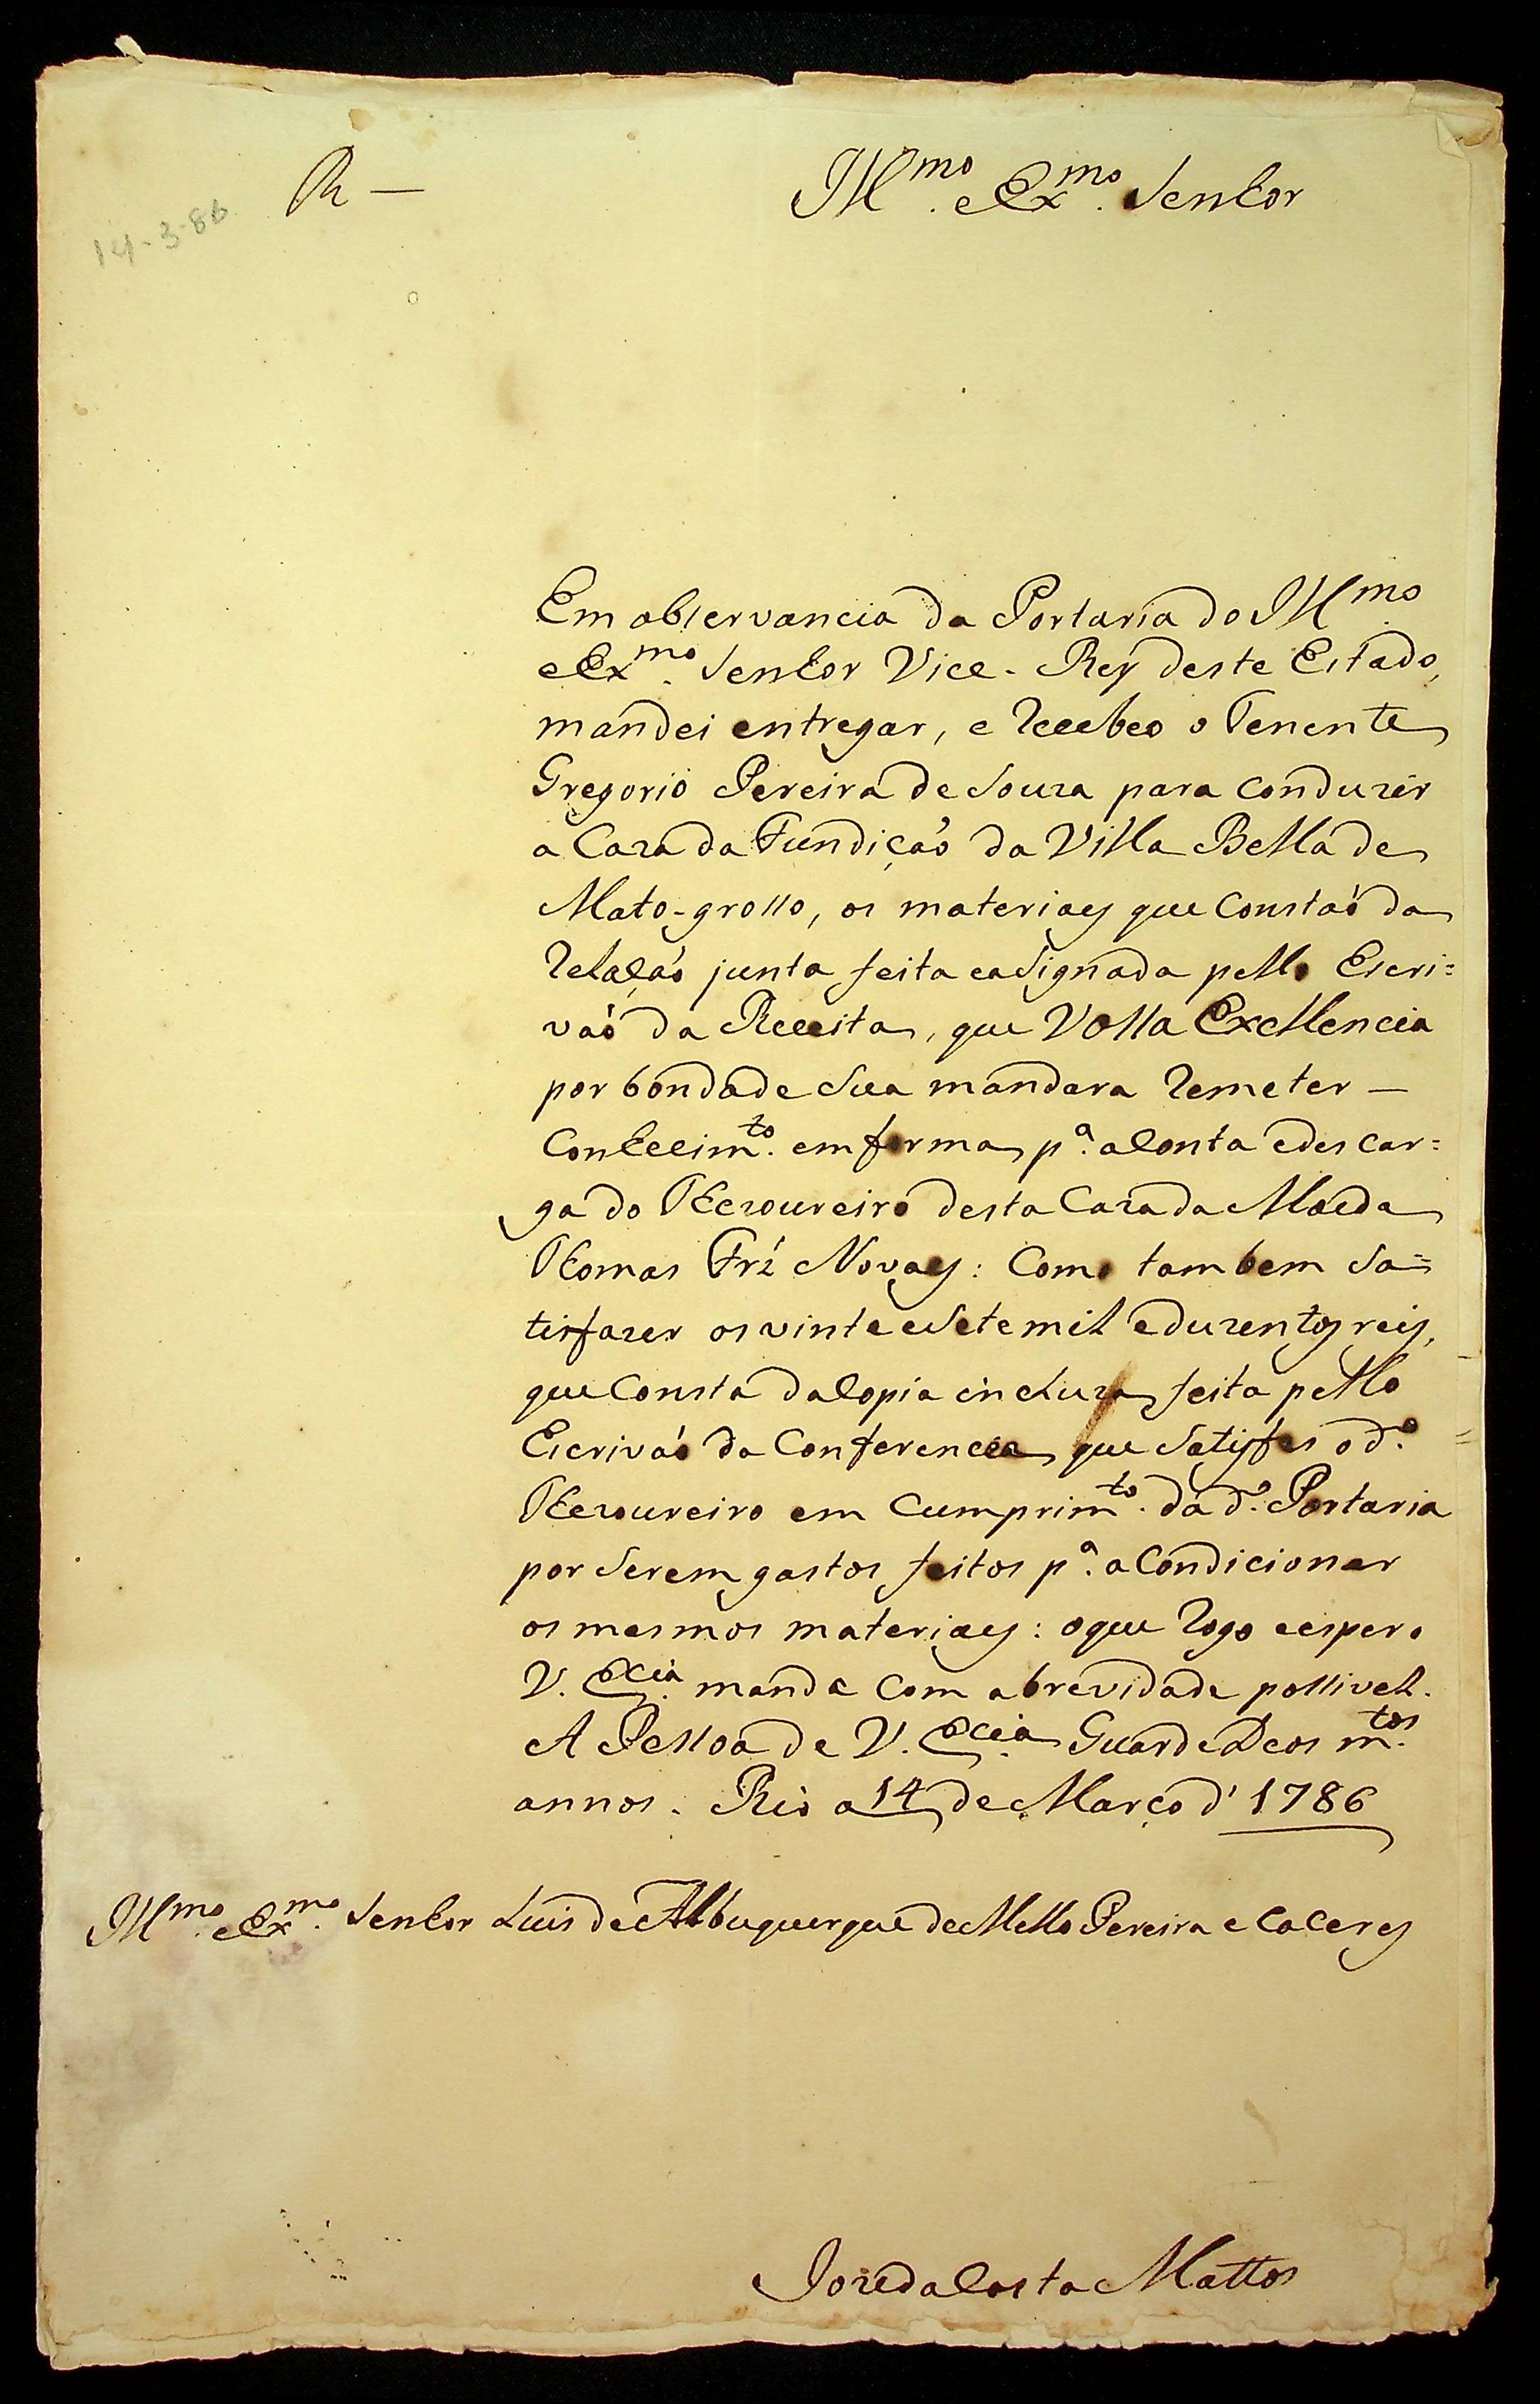 R —
14-3-86
Ill.mo eEx.mo Senhor
Em observancia da Portaria do Ill.mo
eEx.mo Senhor Vice-Rey deste Estado,
mandei entregar, e recebeo o Tenente
Gregorio Pereira de Souza para conduzir
a Caza da Fundiçaõ da Villa Bella de
Mato-grosso, os materiaes que constaõ da
relaçaõ junta feita easignada pello Escri=
vaõ da Receita, que Vossa Excellencia
por bondade sua mandara remeter —
Conhecim.to em forma p.a aConta edescar=
ga do Thezoureiro desta Caza da Moeda
Thomas Frz Novaes: Como tambem sa=
tisfazer os vinte esete mil eduzentos reis,
que Consta daCopia incluza feita pello
Escrivaõ da Conferencia que satisfes o d.o
Thezoureiro em cumprim.to da d.a Portaria
por serem gastos feitos p.a aCondicionar
os mesmos materiaes: oque rogo eespero
V. Ex.cia mande com abrevidade possivel.
A Pessoa de V. Ex.cia Guarde Deos m.tos
annos. Rio a 14 de Março d' 1786
Ill.mo eEx.mo Senhor Luis de Albuquerque de Mello Pereira e Caceres
Joze da Costa Mattos